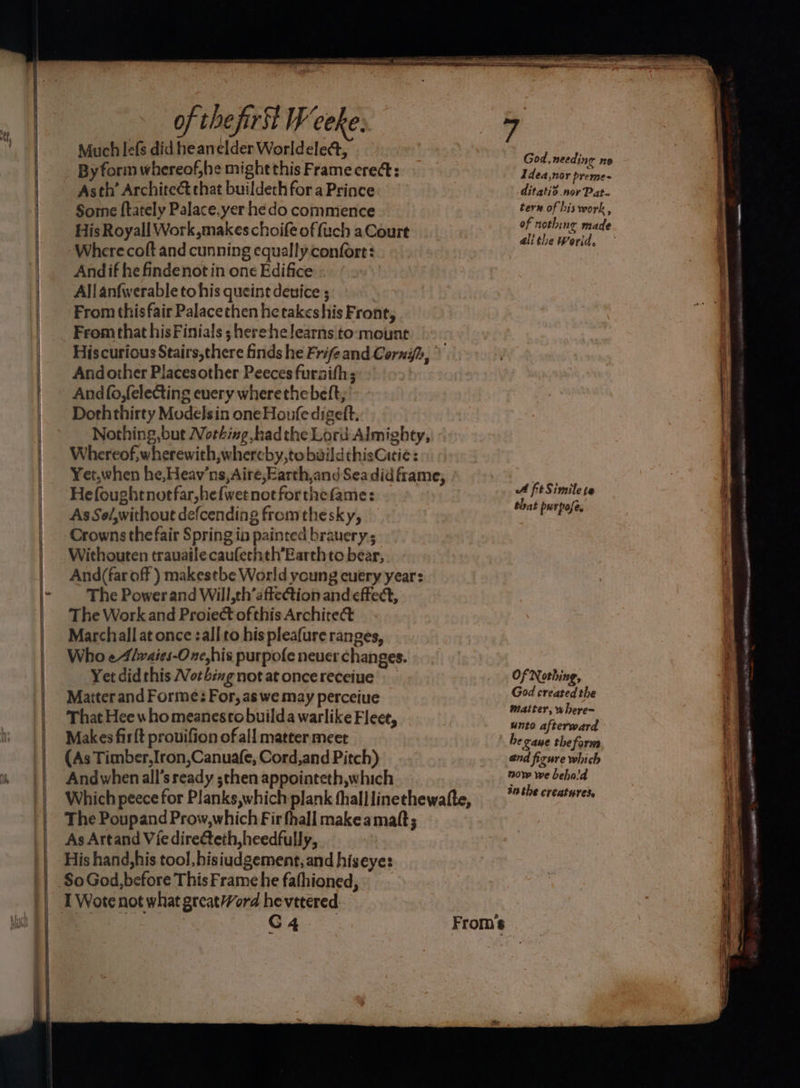 of the first Weeke.
7
Much less did he an elder World elect,
By form whereof, he might this Frame erect:
As th' Architect that buildeth for a Prince
Some stately Palace, yer he do commence
His Royall Work, makes choise of such a Court
Where cost and cunning equally confort:
And if he finde not in one Edifice
All answerable to his queint deuice;
From this fair Palace then he takes his Front,
From that his Finials; here he learns to mount
His curious Stairs, there finds he Frise and Cornish,
And other Places other Peeces furnish;
And so, selecting euery where the best,
Doth thirty Models in one House digest.
Nothing, but Nothing, had the Lord Almighty,
Whereof, wherewith, whereby, to build this Citie:
Yet, when he, Heav'ns, Aire, Earth, and Sea did frame,
He sought not far, he swet not for the same:
As Sol, without descending from the sky,
Crowns the fair Spring in painted brauery;
Withouten trauaile causeth th'Earth to bear,
And (far off) makes the World young euery year:
The Power and Will, th'affection and effect,
The Work and Proiect of this Architect
March all at once: all to his pleasure ranges,
Who Alwaies-One, his purpose neuer changes.
Yet did this Nothing not at once receiue
Matter and Forme: For, as we may perceiue
That Hee who meanes to build a warlike Fleet,
Makes first prouision of all matter meet
(As Timber, Iron, Canuase, Cord, and Pitch)
And when all's ready; then appointeth, which
Which peece for Planks, which plank shall line the waste,
The Poup and Prow, which Fir shall make a mast;
As Art and Vse directeth, heedfully,
His hand, his tool, his iudgement, and his eye:
So God, before This Frame he fashioned,
I Wote not what great Word he vttered
G 4
From's
God, needing no
Idea, nor preme-
ditatiō nor Pat-
tern of his work,
of nothing made
all the World.
A fit Simile to
that purpose.
Of Nothing,
God created the
matter, where-
unto afterward
he gaue the form
and figure which
now we behold
in the creatures.